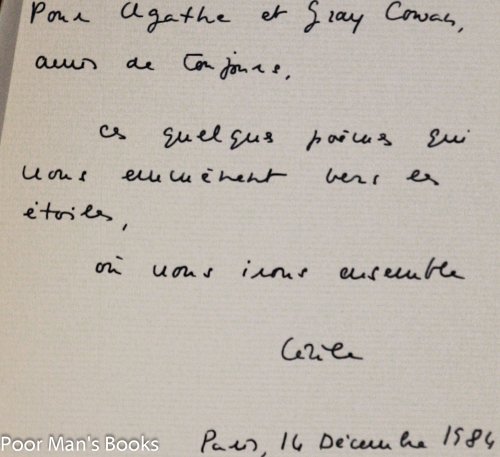 Pour Agathe et Gray Cowan,
amis de toujours,
ces quelques poèmes qui
nous emmènent vers les
étoiles,
où nous irons ensemble
Cécile
Paris, 14 Décembre 1984
Poor Man's Books